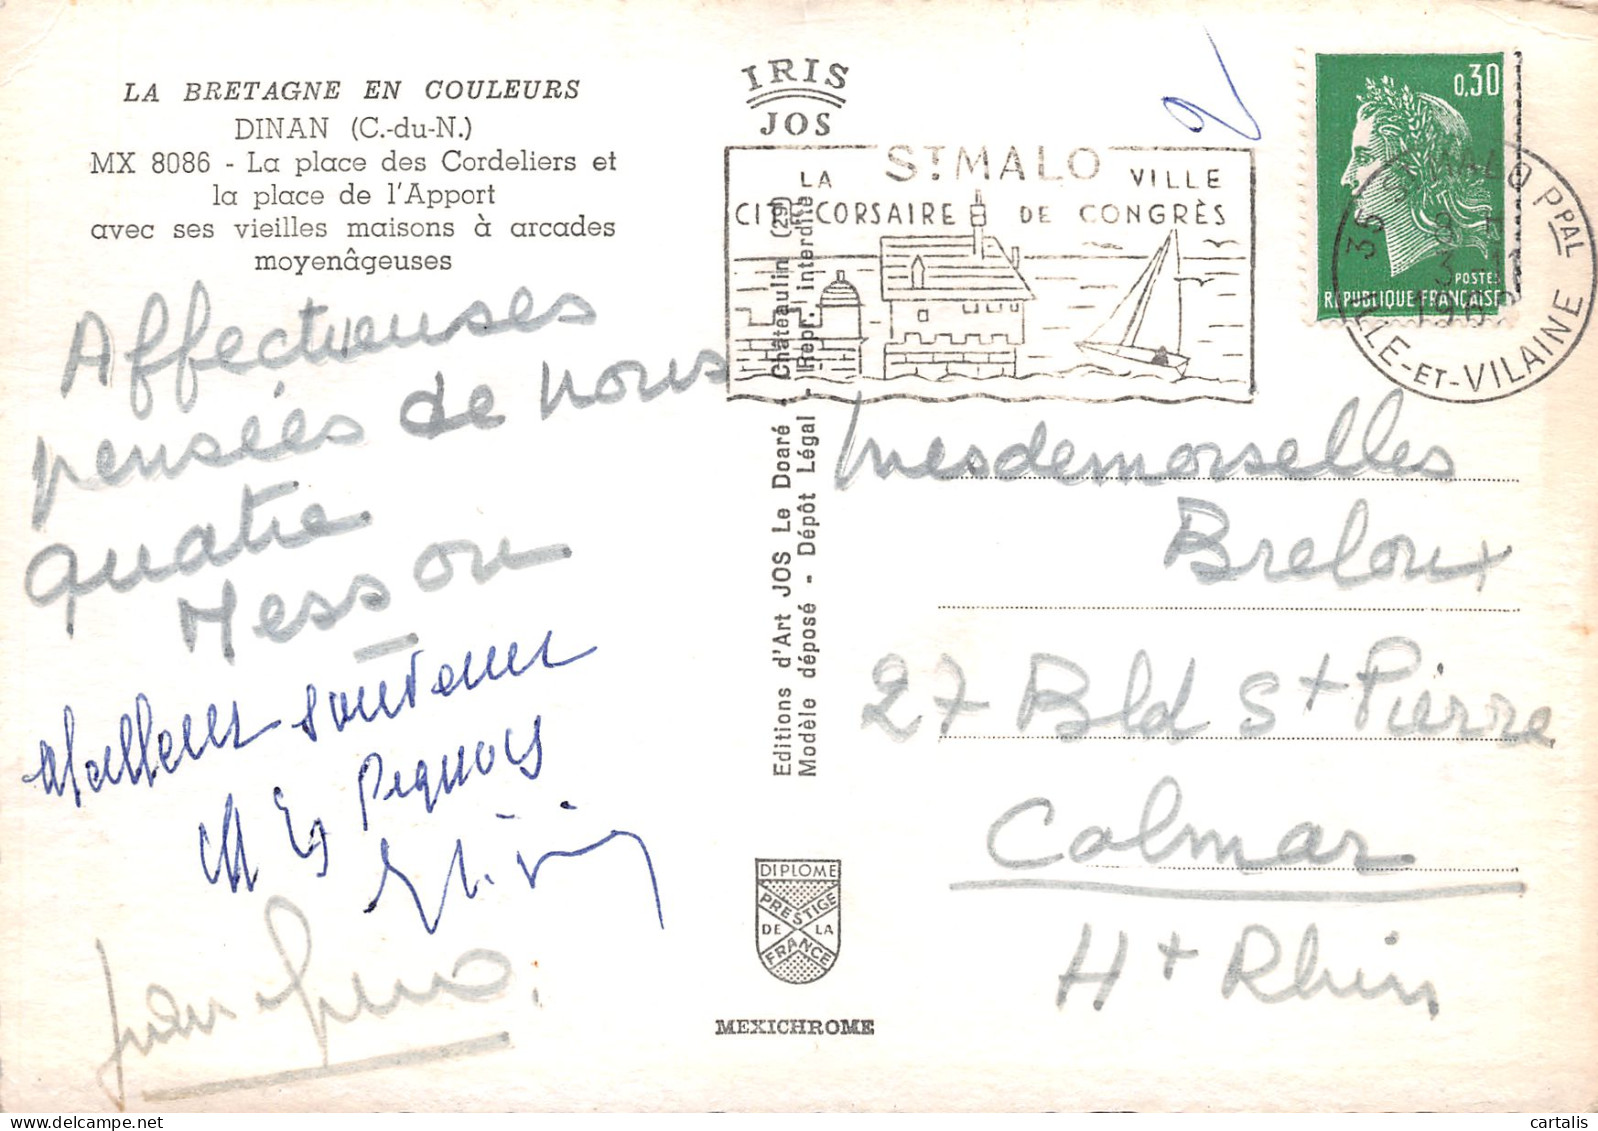 LA BRETAGNE EN COULEURS
DINAN (C.-du-N.)
MX 8086 - La place des Cordeliers et
la place de l'Apport
avec ses vieilles maisons à arcades
moyenâgeuses
Affectueuses
pensées de nous
quatre
Messon
Meilleurs souvenirs
IRIS
JOS
ST MALO
LA VILLE
CITÉ CORSAIRE DE CONGRÈS
Editions d'Art JOS Le Doaré - Châteaulin (29)
Modèle déposé - Dépôt Légal - Repr. interdite
DIPLOME
PRESTIGE
DE LA
FRANCE
MEXICHROME
0,30
POSTES
REPUBLIQUE FRANÇAISE
35 ST MALO PPAL
ILLE-ET-VILAINE
Mesdemoiselles
Breloux
27 Bld St Pierre
Colmar
Ht Rhin
cartalis